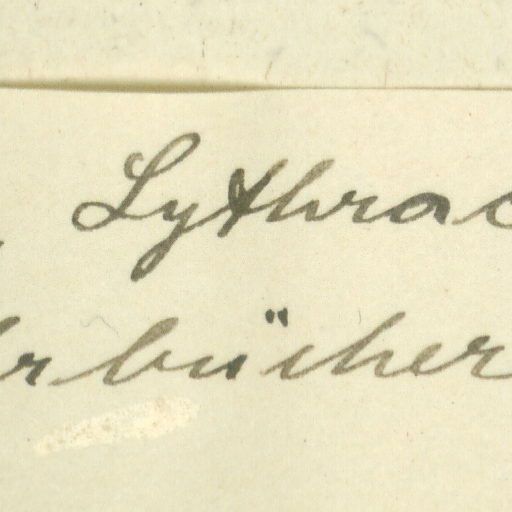 Lythrac
rbücher